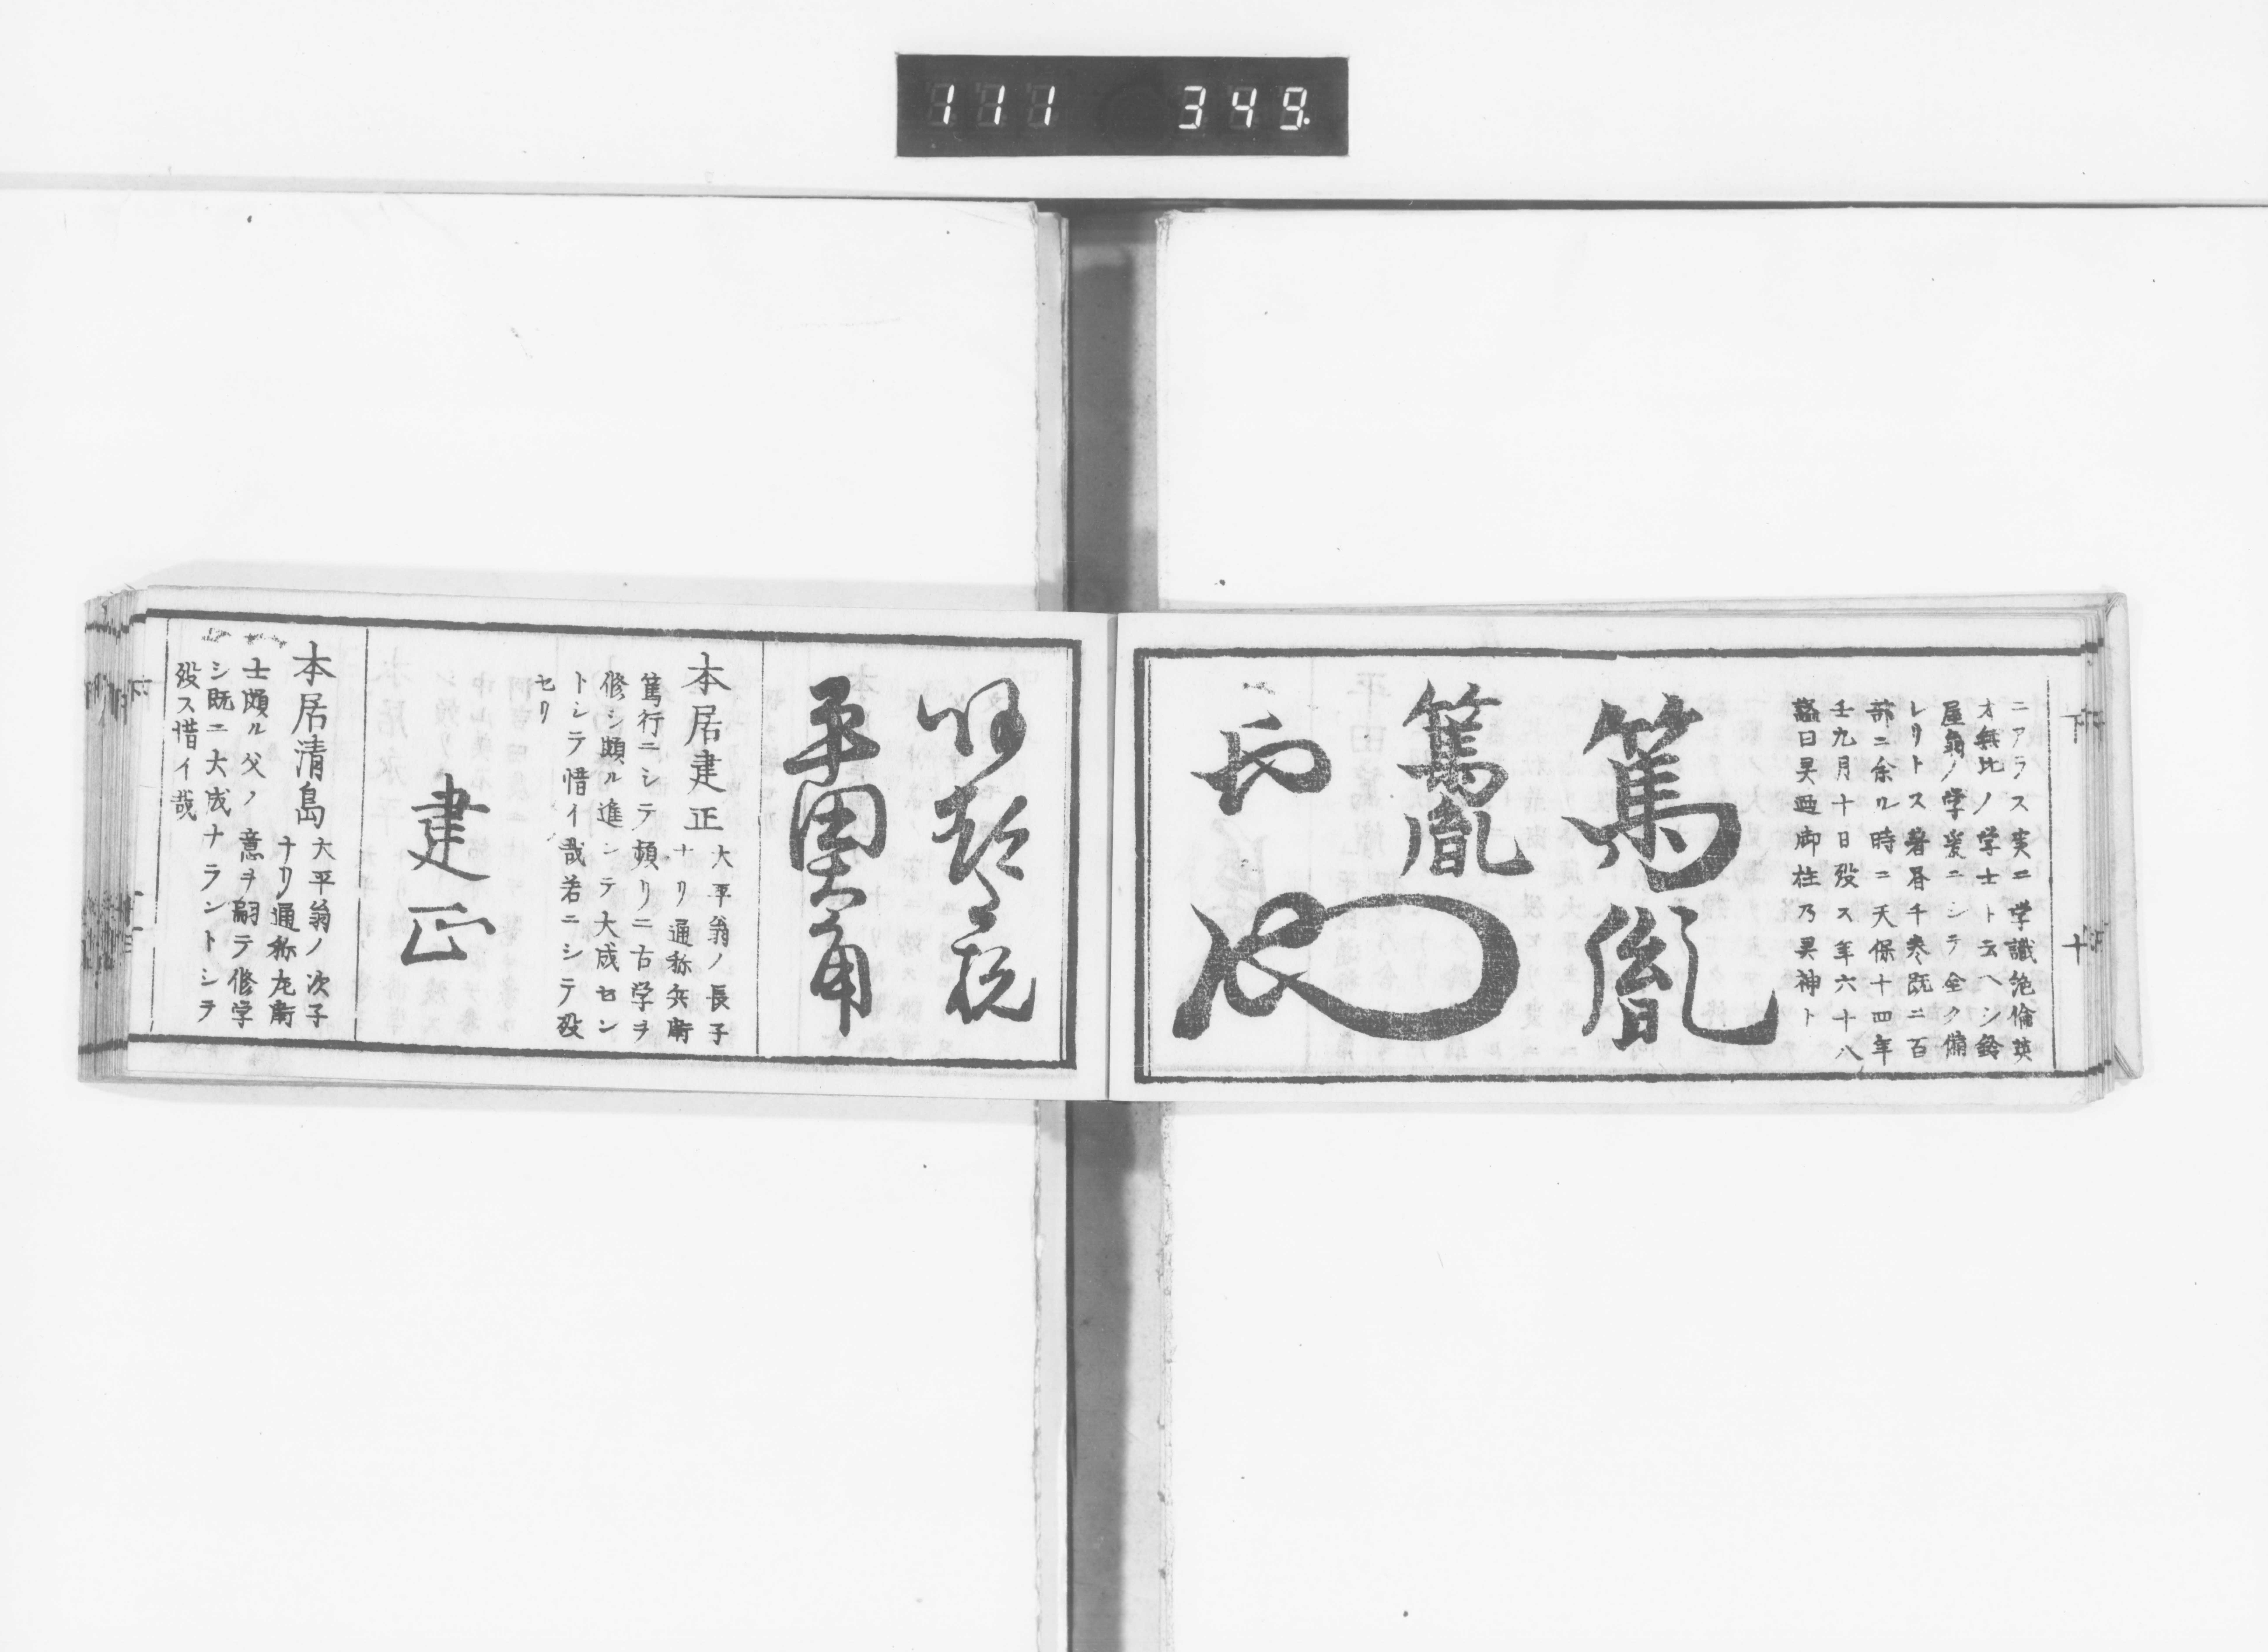 111 349
下
十
ニアラス実ニ学識絶倫英
才無比ノ学士ト云ヘシ鈴
屋翁ノ学業ニシテ全ク備
レリトス著書千巻既ニ百
部ニ余ル時ニ天保十四年
壬九月十日歿ス年六十八
謚曰
御柱乃
神ト
篤胤
篤胤
平田大角
本居建正
大平翁ノ長子
ナリ通称兵衛
篤行ニシテ頻リニ古学ヲ
修シ頗ル進ンテ大成セン
トシテ惜イ哉若ニシテ歿
セリ
建正
本居清島
大平翁ノ次子
ナリ通称左衛
士頗ル父ノ意ヲ嗣テ修学
シ既ニ大成ナラントシテ
歿ス惜イ哉